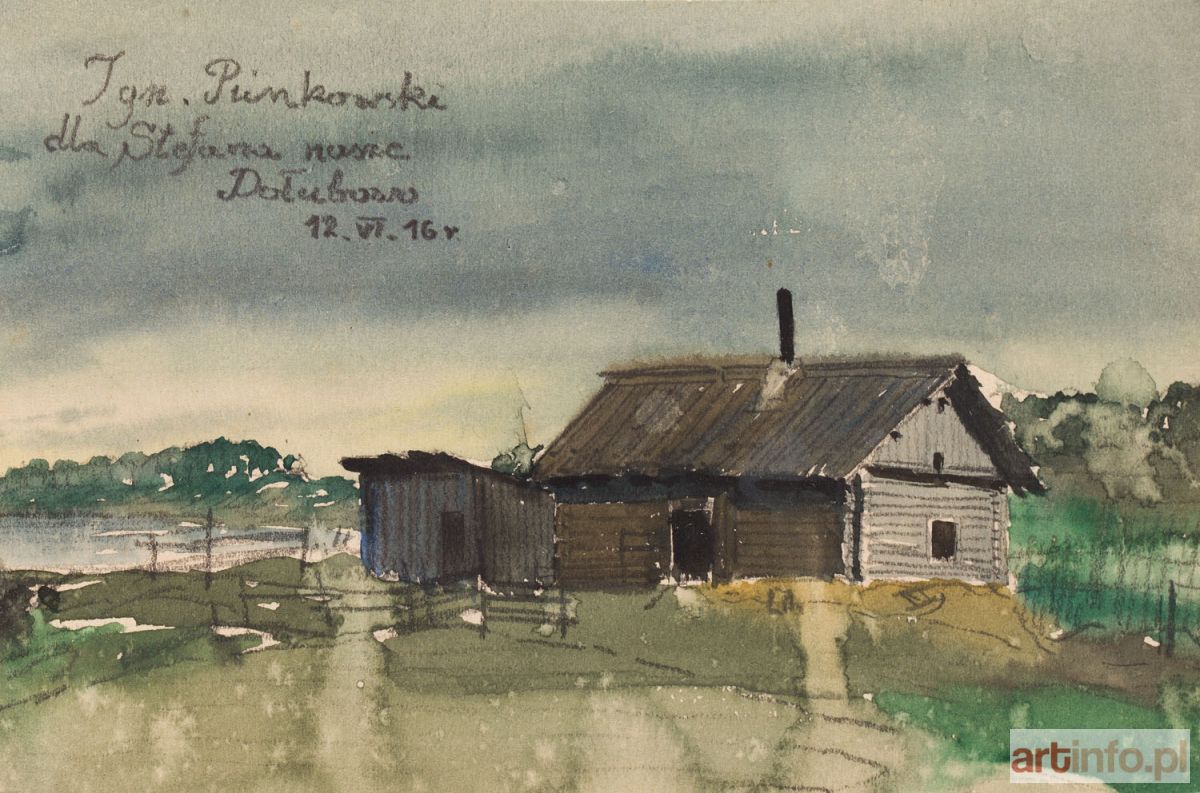 Ign. Pieńkowski
dla Stefana nasze
Dołubowo
12.VI.16r
artinfo.pl